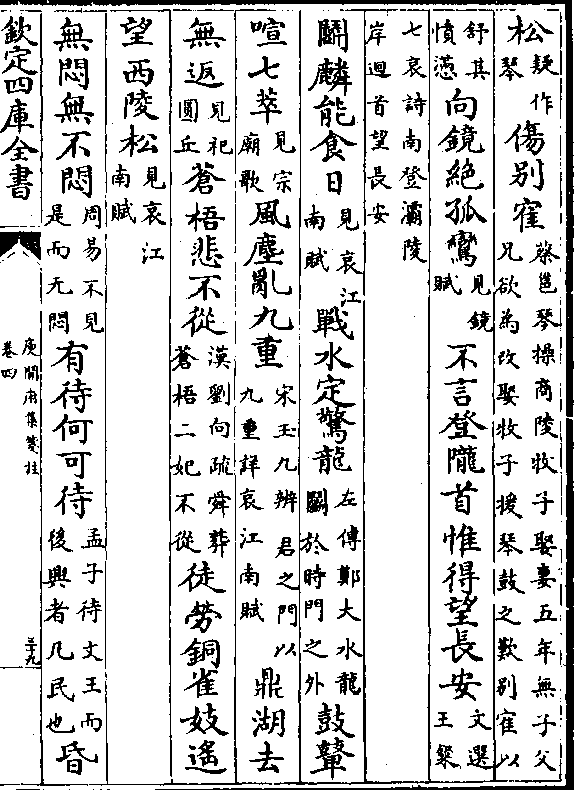 松疑作琴傷別寉蔡邕琴操商陵牧子娶妻五年無子父兄欲為改娶牧子援琴鼓之歎別寉以
舒其憤懣向鏡絶孤鸞見鏡賦不言登隴首惟得望長安文選王粲
七哀詩南登灞陵岸迴首望長安
鬭麟能食日見哀江南賦戰水定驚龍左傳鄭大水龍鬭於時門之外鼓鼙
喧七萃見宗廟歌風塵亂九重宋玉九辨君之門以九重詳哀江南賦鼎湖去
無返見祀圓丘蒼梧悲不從漢劉向疏舜葬蒼梧二妃不從徒勞銅雀妓遙
望西陵松見哀江南賦
無悶無不悶周易不見是而无悶有待何可待孟子待文王而後興者凡民也昏
欽定四庫全書
庾開府集箋註
卷四
三十九